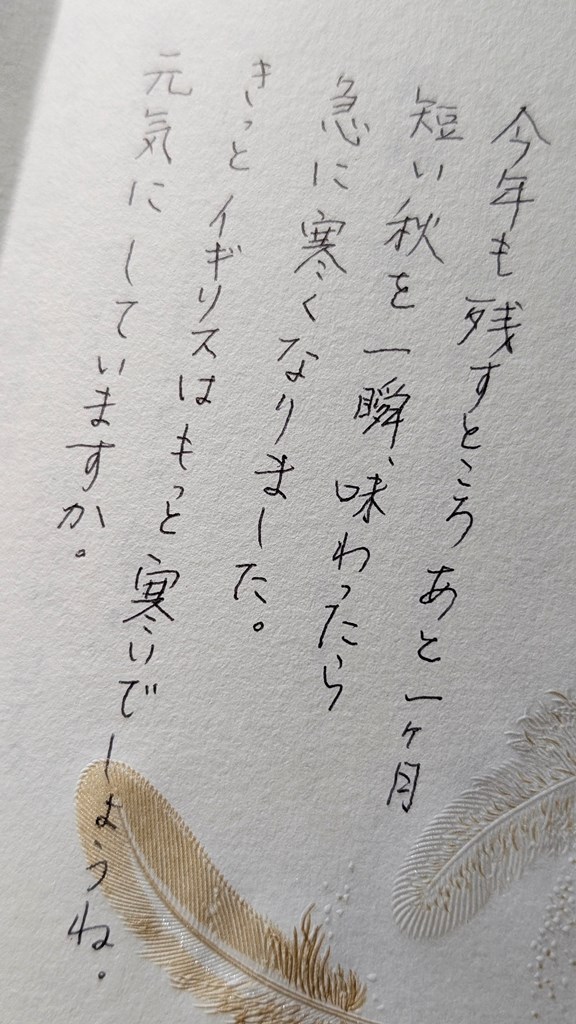 今年も残すところあと一ヶ月
短い秋を一瞬、味わったら
急に寒くなりました。
きっとイギリスはもっと寒いでしょうね。
元気にしていますか。